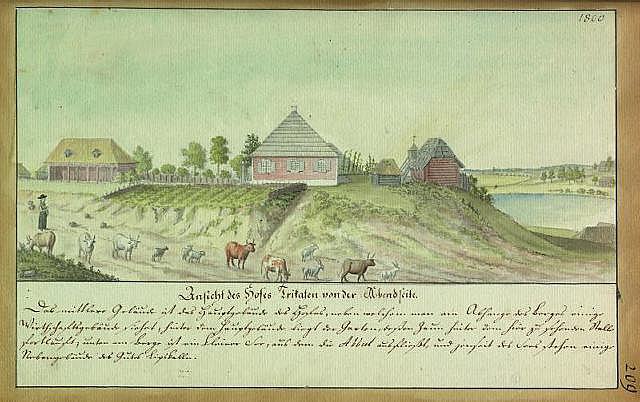 1800
Ansicht des Hofes Trikaten von der Abendseite.
Das mittlere Gebäude ist das Hauptgebäude des Hofes, neben welchem man am Abhange des Berges einige
Wirthschaftsgebäude sieht, hinter dem Hauptgebäude liegt der Garten, dessen Zaun hinter dem hier zu sehenden Stall
fortläuft, unten am Berge ist ein kleiner See, aus dem die Abbul ausfließt, und jenseit des Sees stehen einige
Nebengebäude des Gutes
209